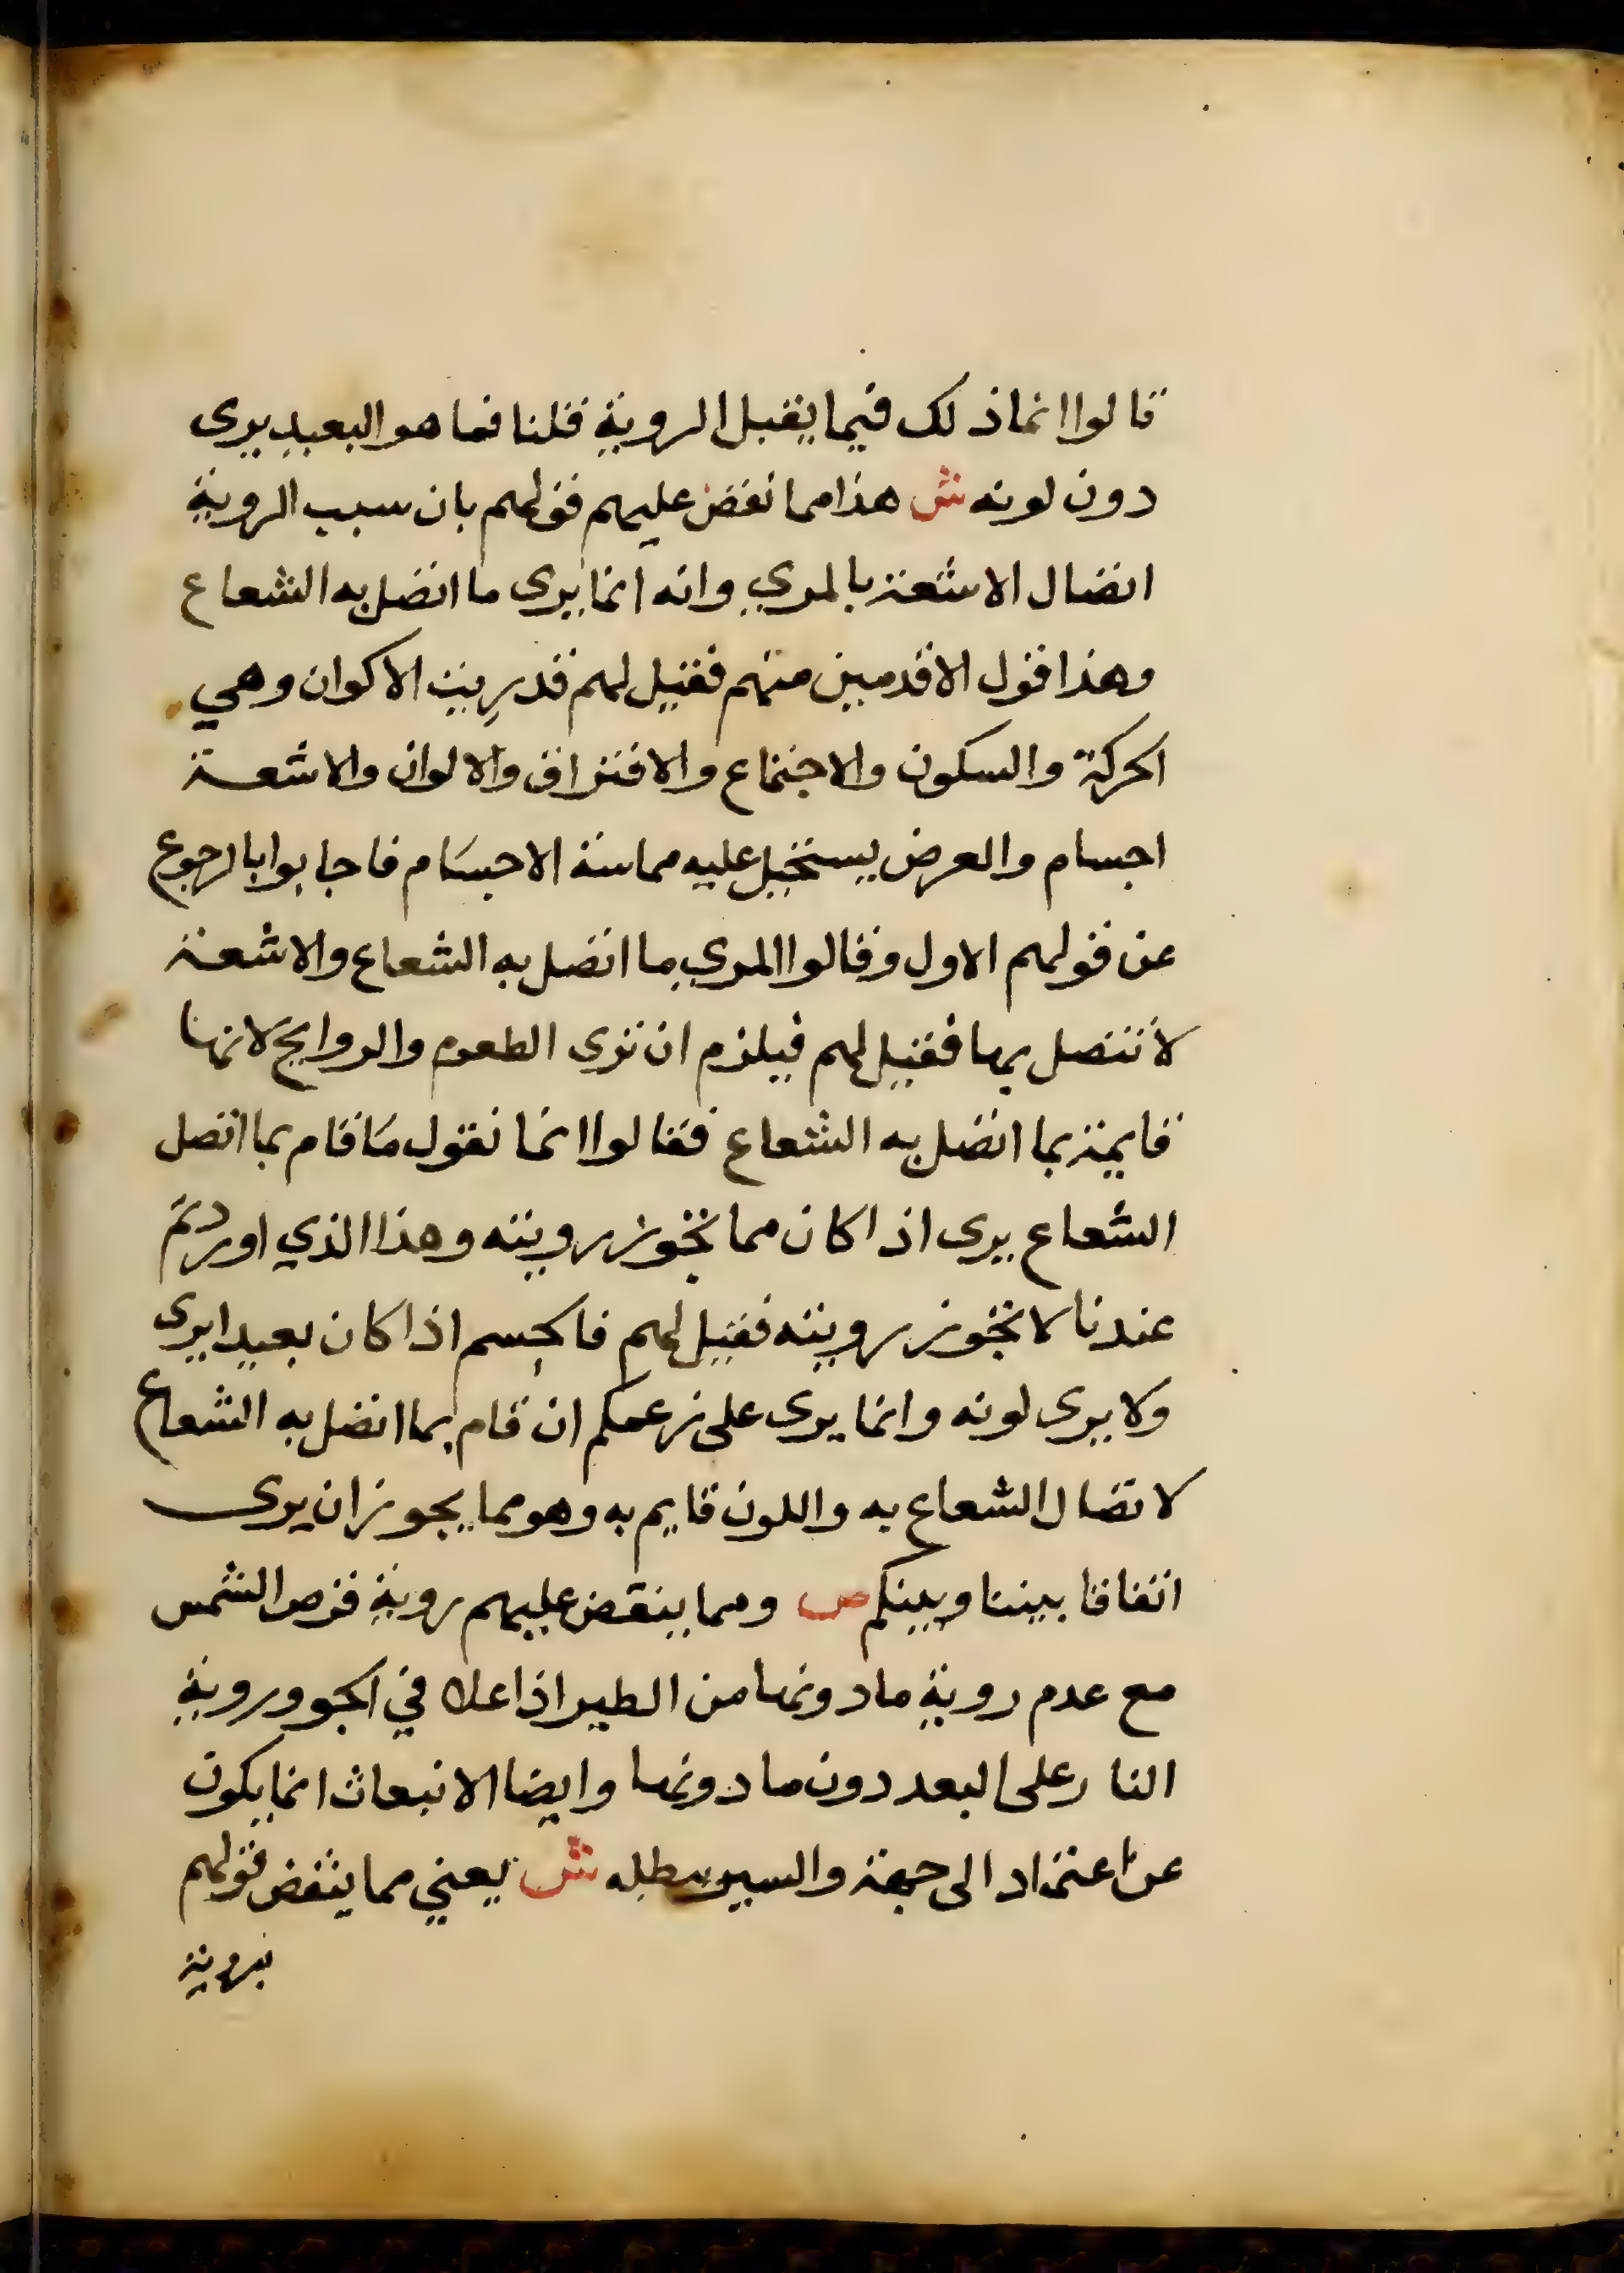 قالوا انما ذلك فيما يقبل الروية قلنا فما هو البعيد يرى
دون لونه ش هذا مما نقض عليهم قولهم بان سبب الروية
اتصال الاشعة بالمري وانه انما يرى ما اتصل به الشعاع
وهذا قول الاقدمين منهم فقيل لهم قد ريت الاكوان وهي
الحركة والسكون والاجتماع والافتراق والالوان والاشعة
اجسام والعرض يستحيل عليه مماسة الاجسام فاجابوا بالرجوع
عن قولهم الاول وقالوا المري ما اتصل به الشعاع والاشعة
لا تتصل بها فقيل لهم فيلزم ان ترى الطعوم والروايح لانها
قايمة بما اتصل به الشعاع فقالوا انما نقول ما قام بما اتصل
الشعاع يرى اذا كان مما تجوز رويته وهذا الذي اوردتم
عندنا لا تجوز رويته فقيل لهم فالجسم اذا كان بعيدا يرى
ولا يرى لونه وانما يرى على زعمكم ان قام بما اتصل به الشعاع
لاتصال الشعاع به واللون قايم به وهو مما يجوز ان يرى
اتفاقا بيننا وبينكم ص ومما ينقض عليهم روية قرص الشمس
مع عدم روية ما دونها من الطير اذا علا في الجو وروية
النار على البعد دون ما دونها وايضا الانبعاث انما يكون
عن اعتماد الى جهة والسير ش يعني مما ينقض قولهم
بروية